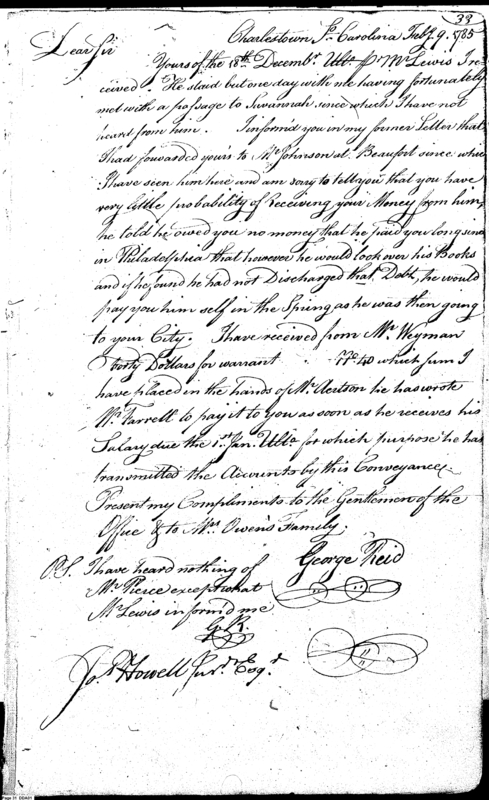 33
Charlestown So. Carolina Feby. 9. 1785
Dear Sir
Yours of the 18th. Decembr. Ulto. pr Mr Lewis I re
ceived. He staid but one day with me having fortunately
met with a passage to Savannah since which I have not
heard from him. I inform'd you in my former Letter that
I had forwarded your's to Mr Johnson at Beaufort since whic
I have seen him here and am sorry to tell you that you have
very little probability of receiving your Money from him,
he told he owed you no money that he paid you long since
in Philadelphia that however he would look over his Books
and if he found he had not Discharged that Debt, he would
pay you him self in the Spring as he was then going
to your City. I have received from Mr. Weyman
forty Dollars for warrant No 40 which sum I
have placed in the hands of Mr. he has wrote
Wm. Farrell to pay it to you as soon as he receives his
Salary due the 1st. Jan. Ulto. for which purpose he has
transmitted the Accounts by this Conveyance
Present my Compliments to the Gentlemen of the
Office & to Mrs. Owen's Family.
George Reid
P.S. I have heard nothing of
Mr Pierce except what
Mr Lewis inform'd me
G. R.
Jos. Howell Junr. Esqr.
Page 31 DDA01